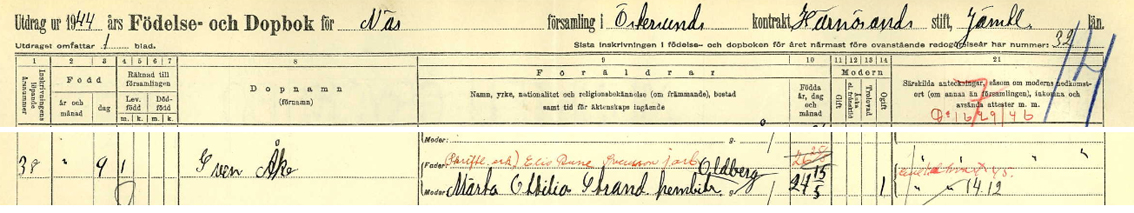 Utdrag ur 1944 års Födelse- och Dopbok för Näs församling i Östersunds kontrakt Härnösands stift, Jämtl. län.
Utdraget omfattar 1 blad.
Sista inskrivningen i födelse- och dopboken för året närmast före ovanstående redogörelseår har nummer: 32
14
1 2 3 4 5 6 7 8 9 10 11 12 13 14 21
Inskrivningens löpande årsnummer
Född
år och månad
dag
Räknad till församlingen
Lev. född
Död- född
m. k. m. k.
Dopnamn
(förnamn)
Föräldrar
Namn, yrke, nationalitet och religionsbekännelse (om främmande), bostad
samt tid för äktenskaps ingående
Födda år, dag och månad
Modern
Gift
Trolovad
Ogift
Särskilda anteckningar, såsom om moderns nedkomst-
ort (om annan än församlingen), inkomna och
använda attester m. m.
Moder:
38 " 9 1 Sven Åke
Fader: Elis Rune Svensson
Moder: Märta Ottilia Strand hembitr. Oldberg 24 15/5 1
14.12